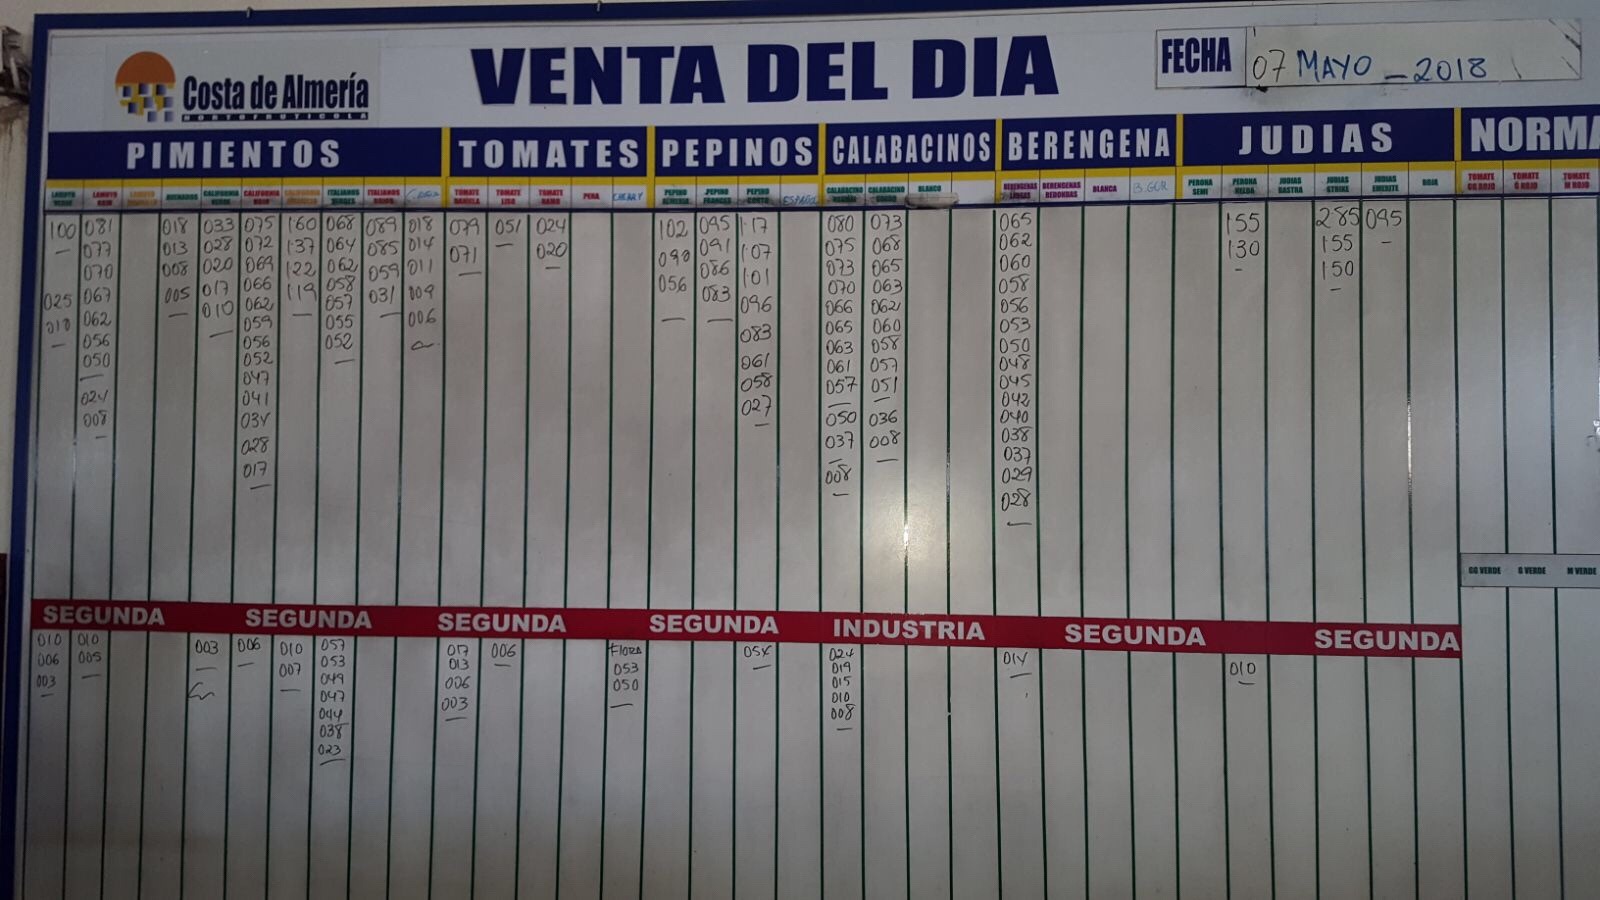 Costa de Almería
HORTOFRUTICOLA
VENTA DEL DIA
FECHA 07 MAYO _ 2018
PIMIENTOS TOMATES PEPINOS CALABACINOS BERENGENA JUDIAS NORMA
LAMUYO VERDE LAMUYO ROJO CALIFORNIA VERDE CALIFORNIA ROJO ITALIANOS VERDES ITALIANOS ROJOS TOMATE DANIELA TOMATE LISO TOMATE RAMO PERA CHERRY PEPINO ALMERIA PEPINO FRANCES PEPINO CORTO ESPAÑOL CALABACINO CALABACINO GORDO BLANCO BERENGENAS LARGAS BERENGENAS REDONDAS BLANCA B. GOR PERONA SEMI PERONA JUDIAS RASTRA JUDIAS STRIKE JUDIAS EMERITE ROJA TOMATE GG ROJO TOMATE G ROJO TOMATE M ROJO
100 081 018 033 075 160 068 089 018 079 051 024 102 095 117 080 073 065 155 285 095
077 013 028 072 137 064 085 014 071 020 090 091 107 075 068 062 130 155
070 008 020 069 122 062 059 011 056 086 101 073 065 060 150
025 067 005 017 066 119 058 031 009 083 096 070 063 058
010 062 010 062 057 006 083 066 062 056
056 059 055 061 065 060 053
050 056 052 058 063 058 050
024 052 027 061 057 048
008 047 057 051 045
041 050 036 042
034 037 008 040
028 008 038
017 037
029
028
GG VERDE G VERDE M VERDE
SEGUNDA SEGUNDA SEGUNDA SEGUNDA INDUSTRIA SEGUNDA SEGUNDA
010 010 003 006 010 057 017 006 FLORA 054 024 014 010
006 005 007 053 013 053 019
003 049 006 050 015
047 003 010
044 008
038
023